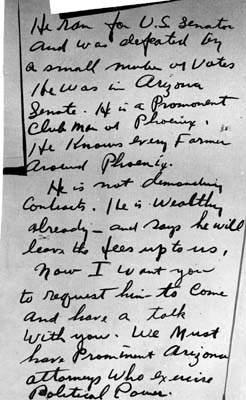 He ran for U.S. Senator
and was defeated by
a small number of Votes
He was in Arizona
Senate. He is a Prominent
Club Man of Phoenix.
He Knows every Farmer
around Phoenix.
He is not demanding
Contracts. He is Wealthy
already – and says he will
leave the fees up to us,
Now I want you
to request him to Come
and have a talk
with you. We Must
have Prominent Arizona
attorneys Who exercise
Political Power.